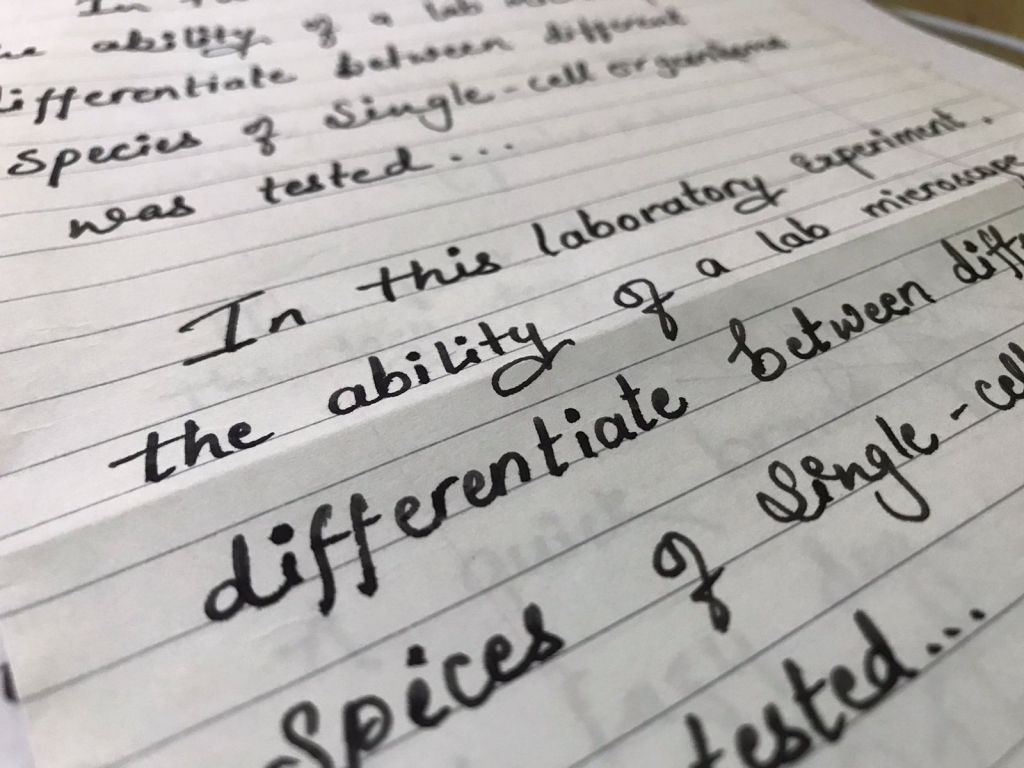 In
ability of a lab
differentiate between different
species of single-cell organisms
was tested...
In this laboratory experiment.
the ability of a lab microscope
differentiate between diff
spices of single-cell
tested...